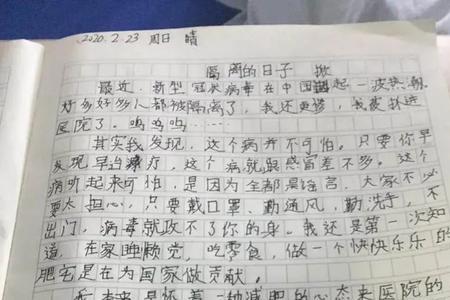 2020.2.23 周日 晴
隔离的日子
最近，新型冠状病毒在中国掀起一波热潮
好多好多人都被隔离了，我还更惨，我被抓进
医院了。呜呜呜……
其实我发现，这个病并不可怕。只要你早
发现早治疗，这个病就跟感冒差不多。这个
病听起来可怕，是因为全都是谣言，大家不必
要太担心，只要戴口罩、勤通风，勤洗手，不
出门，病毒就攻不了你的身。我还是第一次知
道，在家睡懒觉，吃零食，做一个快快乐乐的
肥宅是在为国家做贡献。
我本来是怀着一种减肥的心态来医院的